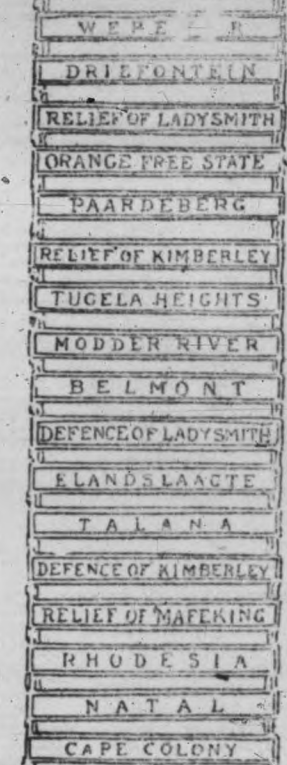 DRIEFONTEIN
RELIEF OF LADYSMITH
ORANGE FREE STATE
PAARDEBERG
RELIEF OF KIMBERLEY
TUGELA HEIGHTS
MODDER RIVER
BELMONT
DEFENCE OF LADYSMITH
ELANDSLAAGTE
TALANA
DEFENCE OF KIMBERLEY
RELIEF OF MAFEKING
RHODESIA
NATAL
CAPE COLONY